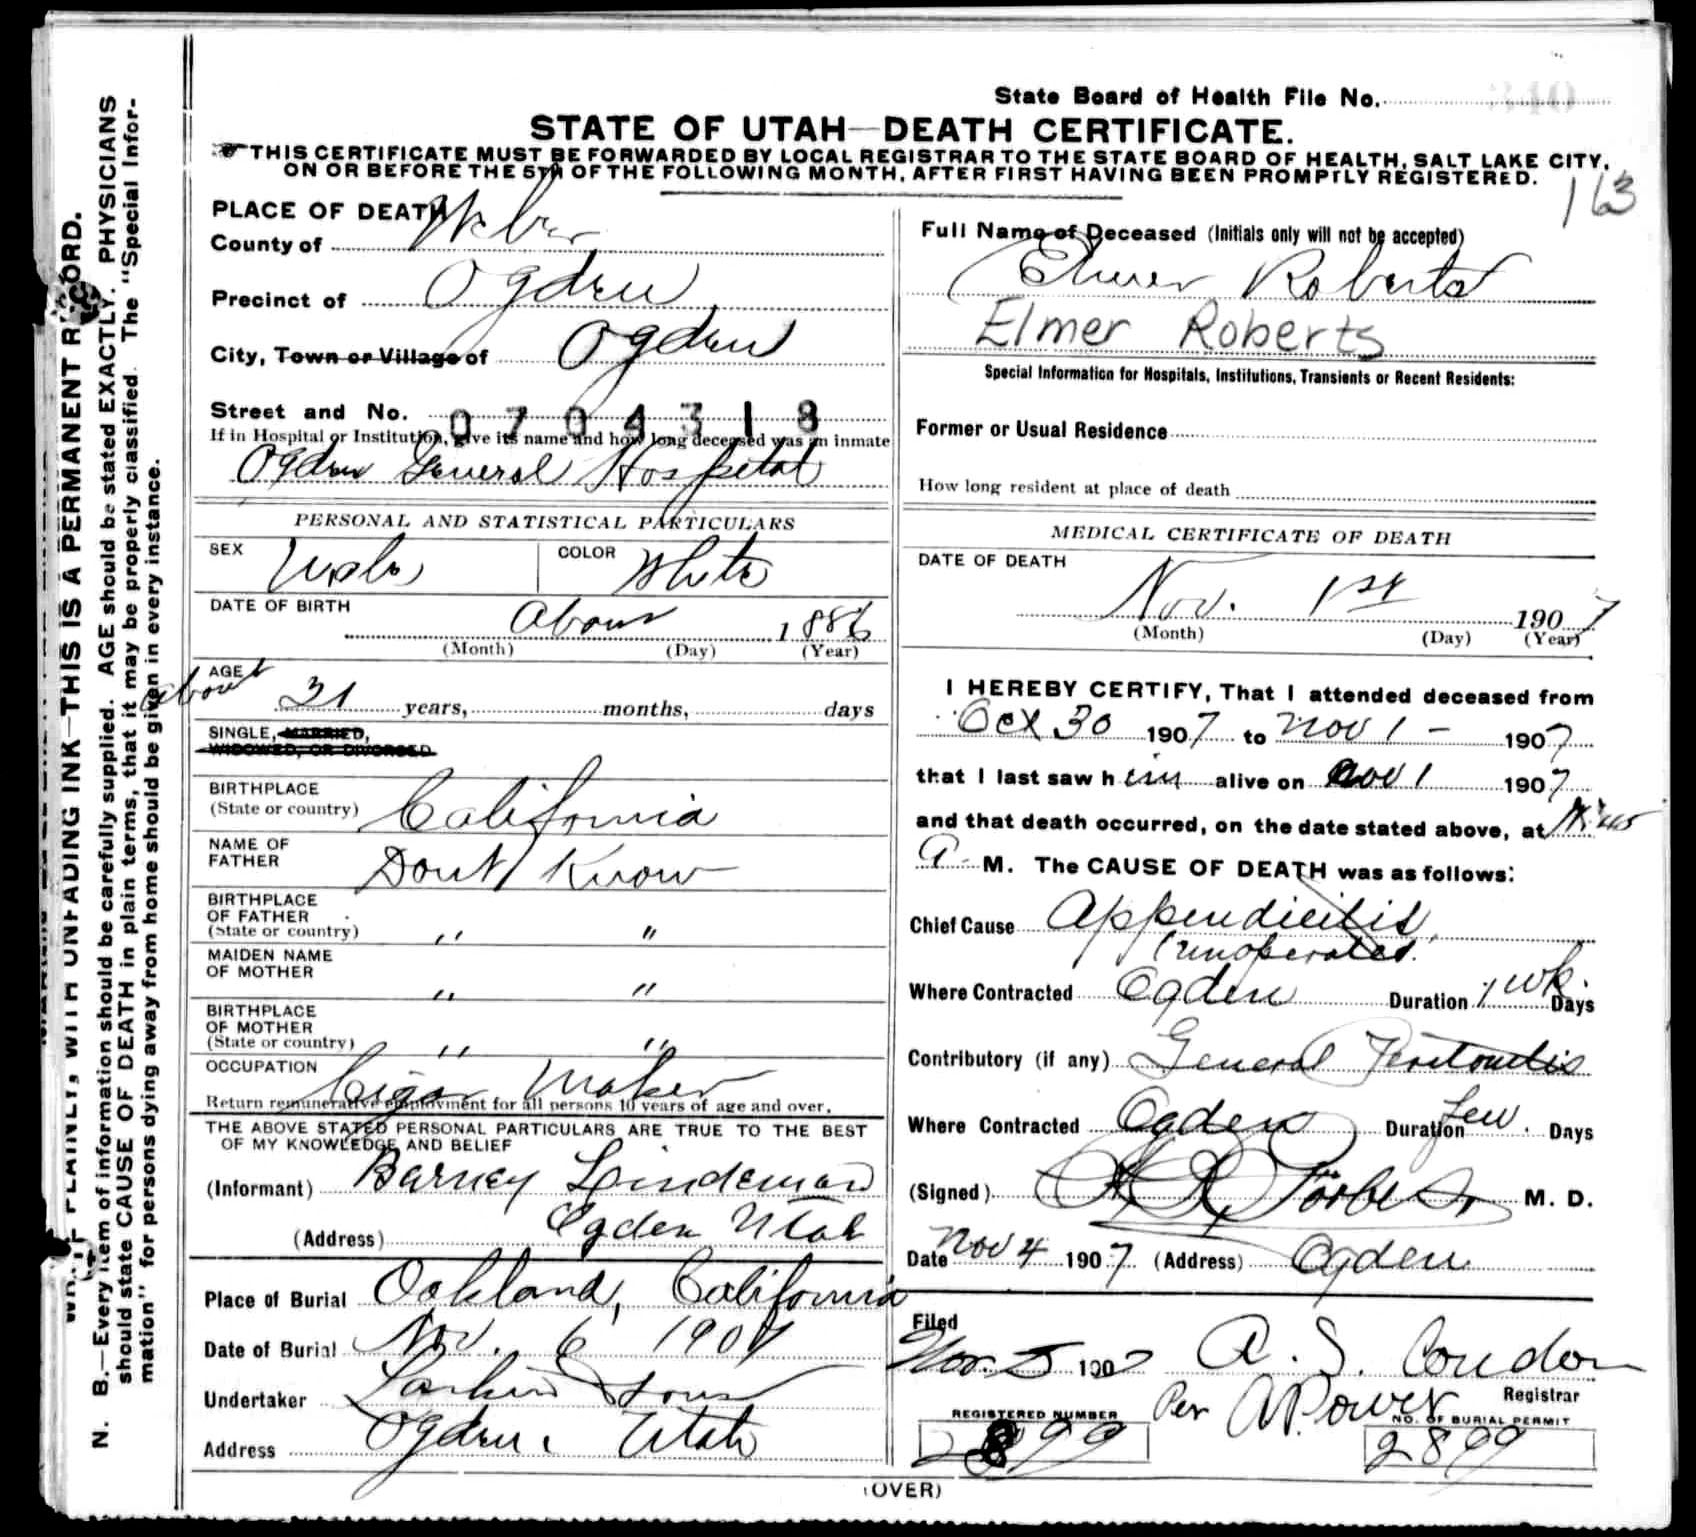 State Board of Health File No. 340
STATE OF UTAH—DEATH CERTIFICATE.
THIS CERTIFICATE MUST BE FORWARDED BY LOCAL REGISTRAR TO THE STATE BOARD OF HEALTH, SALT LAKE CITY,
ON OR BEFORE THE 5TH OF THE FOLLOWING MONTH, AFTER FIRST HAVING BEEN PROMPTLY REGISTERED.
163
WRITE PLAINLY, WITH UNFADING INK—THIS IS A PERMANENT RECORD.
N. B.—Every item of information should be carefully supplied. AGE should be stated EXACTLY. PHYSICIANS
should state CAUSE OF DEATH in plain terms, that it may be properly classified. The "Special Infor-
mation" for persons dying away from home should be given in every instance.
PLACE OF DEATH
County of Weber
Precinct of Ogden
City, Town or Village of Ogden
Street and No. 0704318
If in Hospital or Institution, give its name and how long deceased was an inmate
Ogden General Hospital
PERSONAL AND STATISTICAL PARTICULARS
SEX Male COLOR White
DATE OF BIRTH about 1886
(Month) (Day) (Year)
AGE about 21 years, months, days
SINGLE, MARRIED,
WIDOWED, OR DIVORCED
BIRTHPLACE
(State or country) California
NAME OF
FATHER Dont Know
BIRTHPLACE
OF FATHER
(State or country) " "
MAIDEN NAME
OF MOTHER " "
BIRTHPLACE
OF MOTHER
(State or country) " "
OCCUPATION Cigar Maker
Return remunerative employment for all persons 10 years of age and over.
THE ABOVE STATED PERSONAL PARTICULARS ARE TRUE TO THE BEST
OF MY KNOWLEDGE AND BELIEF
(Informant) Barney Lindeman
(Address) Ogden Utah
Place of Burial Oakland, California
Date of Burial Nov. 6 1907
Undertaker Larkin & Sons
Address Ogden, Utah
Full Name of Deceased (Initials only will not be accepted)
Elmer Roberts
Elmer Roberts
Special Information for Hospitals, Institutions, Transients or Recent Residents:
Former or Usual Residence
How long resident at place of death
MEDICAL CERTIFICATE OF DEATH
DATE OF DEATH
Nov. 1st 1907
(Month) (Day) (Year)
I HEREBY CERTIFY, That I attended deceased from
Oct 30 1907 to Nov 1 - 1907
that I last saw h im alive on Nov 1 1907
and that death occurred, on the date stated above, at
a M. The CAUSE OF DEATH was as follows:
Chief Cause Appendicitis
(unoperated.
Where Contracted Ogden Duration 1 wk. Days
Contributory (if any) General Peritonitis
Where Contracted Ogden Duration Few. Days
(Signed) Forbes M. D.
Date Nov 4 1907 (Address) Ogden
Filed
Nov. 5 1907 A. S. Condon
Registrar
Per A Power
REGISTERED NUMBER
2899
NO. OF BURIAL PERMIT
2899
(OVER)